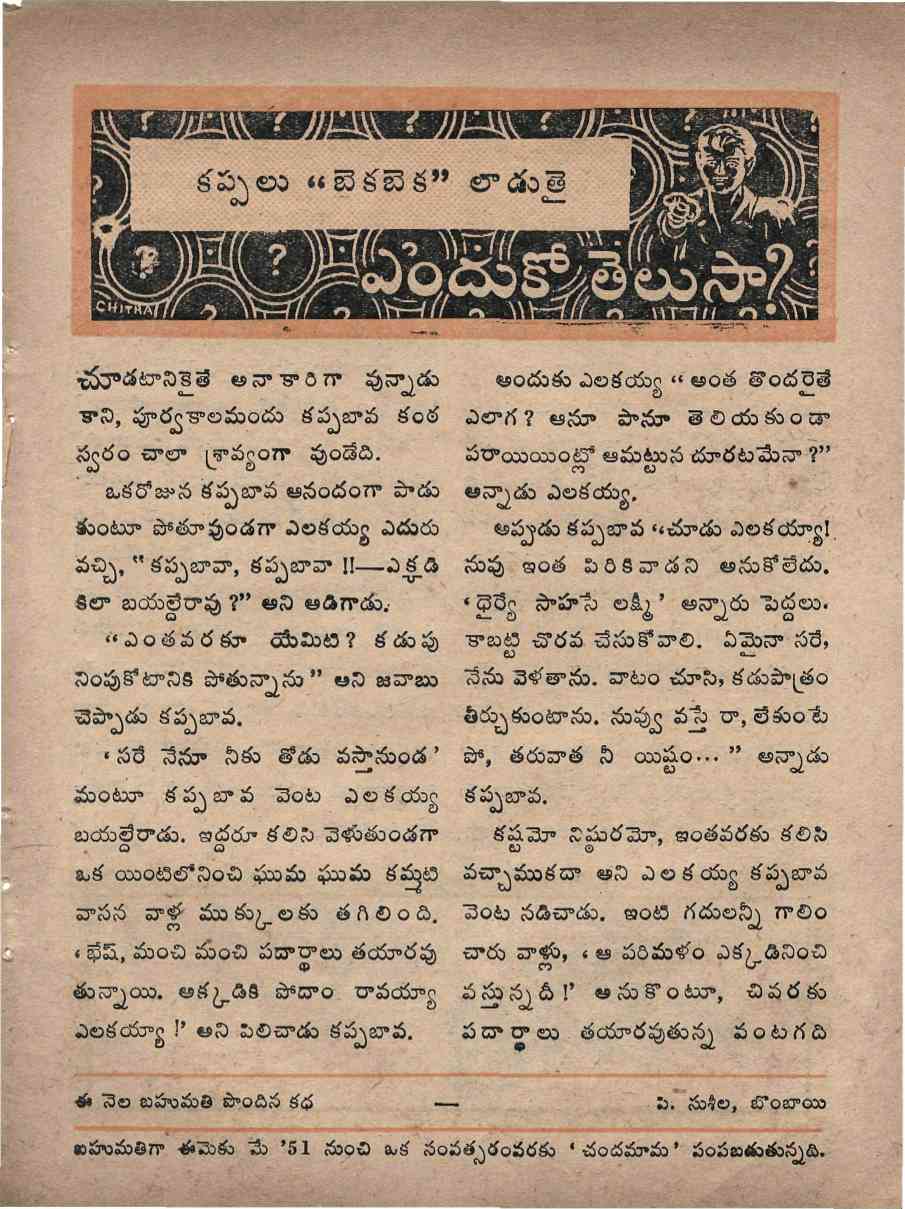 కప్పలు “బెకబెక” లాడుతై
ఎందుకో తెలుసా?
CHITRA
చూడటానికైతే అనాకారిగా వున్నాడు
కాని, పూర్వకాలమందు కప్పబావ కంఠ
స్వరం చాలా శ్రావ్యంగా వుండేది.
ఒకరోజున కప్పబావ ఆనందంగా పాడు
కుంటూ పోతూవుండగా ఎలకయ్య ఎదురు
వచ్చి, “కప్పబావా, కప్పబావా !!—ఎక్కడి
కిలా బయల్దేరావు ?” అని అడిగాడు.
“ఎంతవరకూ యేమిటి? కడుపు
నింపుకోటానికి పోతున్నాను” అని జవాబు
చెప్పాడు కప్పబావ.
‘సరే నేనూ నీకు తోడు వస్తానుండ’
మంటూ కప్పబావ వెంట ఎలకయ్య
బయల్దేరాడు. ఇద్దరూ కలిసి వెళుతుండగా
ఒక యింటిలోనించి ఘుమ ఘుమ కమ్మటి
వాసన వాళ్ల ముక్కులకు తగిలింది.
‘ఖేష్, మంచి మంచి పదార్థాలు తయారవు
తున్నాయి. అక్కడికి పోదాం రావయ్యా
ఎలకయ్యా !’ అని పిలిచాడు కప్పబావ.
అందుకు ఎలకయ్య “అంత తొందరైతే
ఎలాగ? ఆనూ పానూ తెలియకుండా
పరాయియింట్లో ఆమట్టున దూరటమేనా ?”
అన్నాడు ఎలకయ్య.
అప్పుడు కప్పబావ “చూడు ఎలకయ్యా!
నువు ఇంత పిరికివాడని అనుకోలేదు.
‘ధైర్యే సాహసే లక్ష్మీ’ అన్నారు పెద్దలు.
కాబట్టి చొరవ చేసుకోవాలి. ఏమైనా సరే,
నేను వెళతాను. వాటం చూసి, కడుపాత్రం
తీర్చుకుంటాను. నువ్వు వస్తే రా, లేకుంటే
పో, తరువాత నీ యిష్టం...” అన్నాడు
కప్పబావ.
కష్టమో నిష్ఠురమో, ఇంతవరకు కలిసి
వచ్చాముకదా అని ఎలకయ్య కప్పబావ
వెంట నడిచాడు. ఇంటి గదులన్నీ గాలిం
చారు వాళ్లు, ‘ఆ పరిమళం ఎక్కడినించి
వస్తున్నదీ!’ అనుకొంటూ, చివరకు
పదార్థాలు తయారవుతున్న వంటగది
ఈ నెల బహుమతి పొందిన కధ — పి. సుశీల, బొంబాయి
బహుమతిగా ఈమెకు మే ’51 నుంచి ఒక సంవత్సరంవరకు ‘చందమామ’ పంపబడుతున్నది.